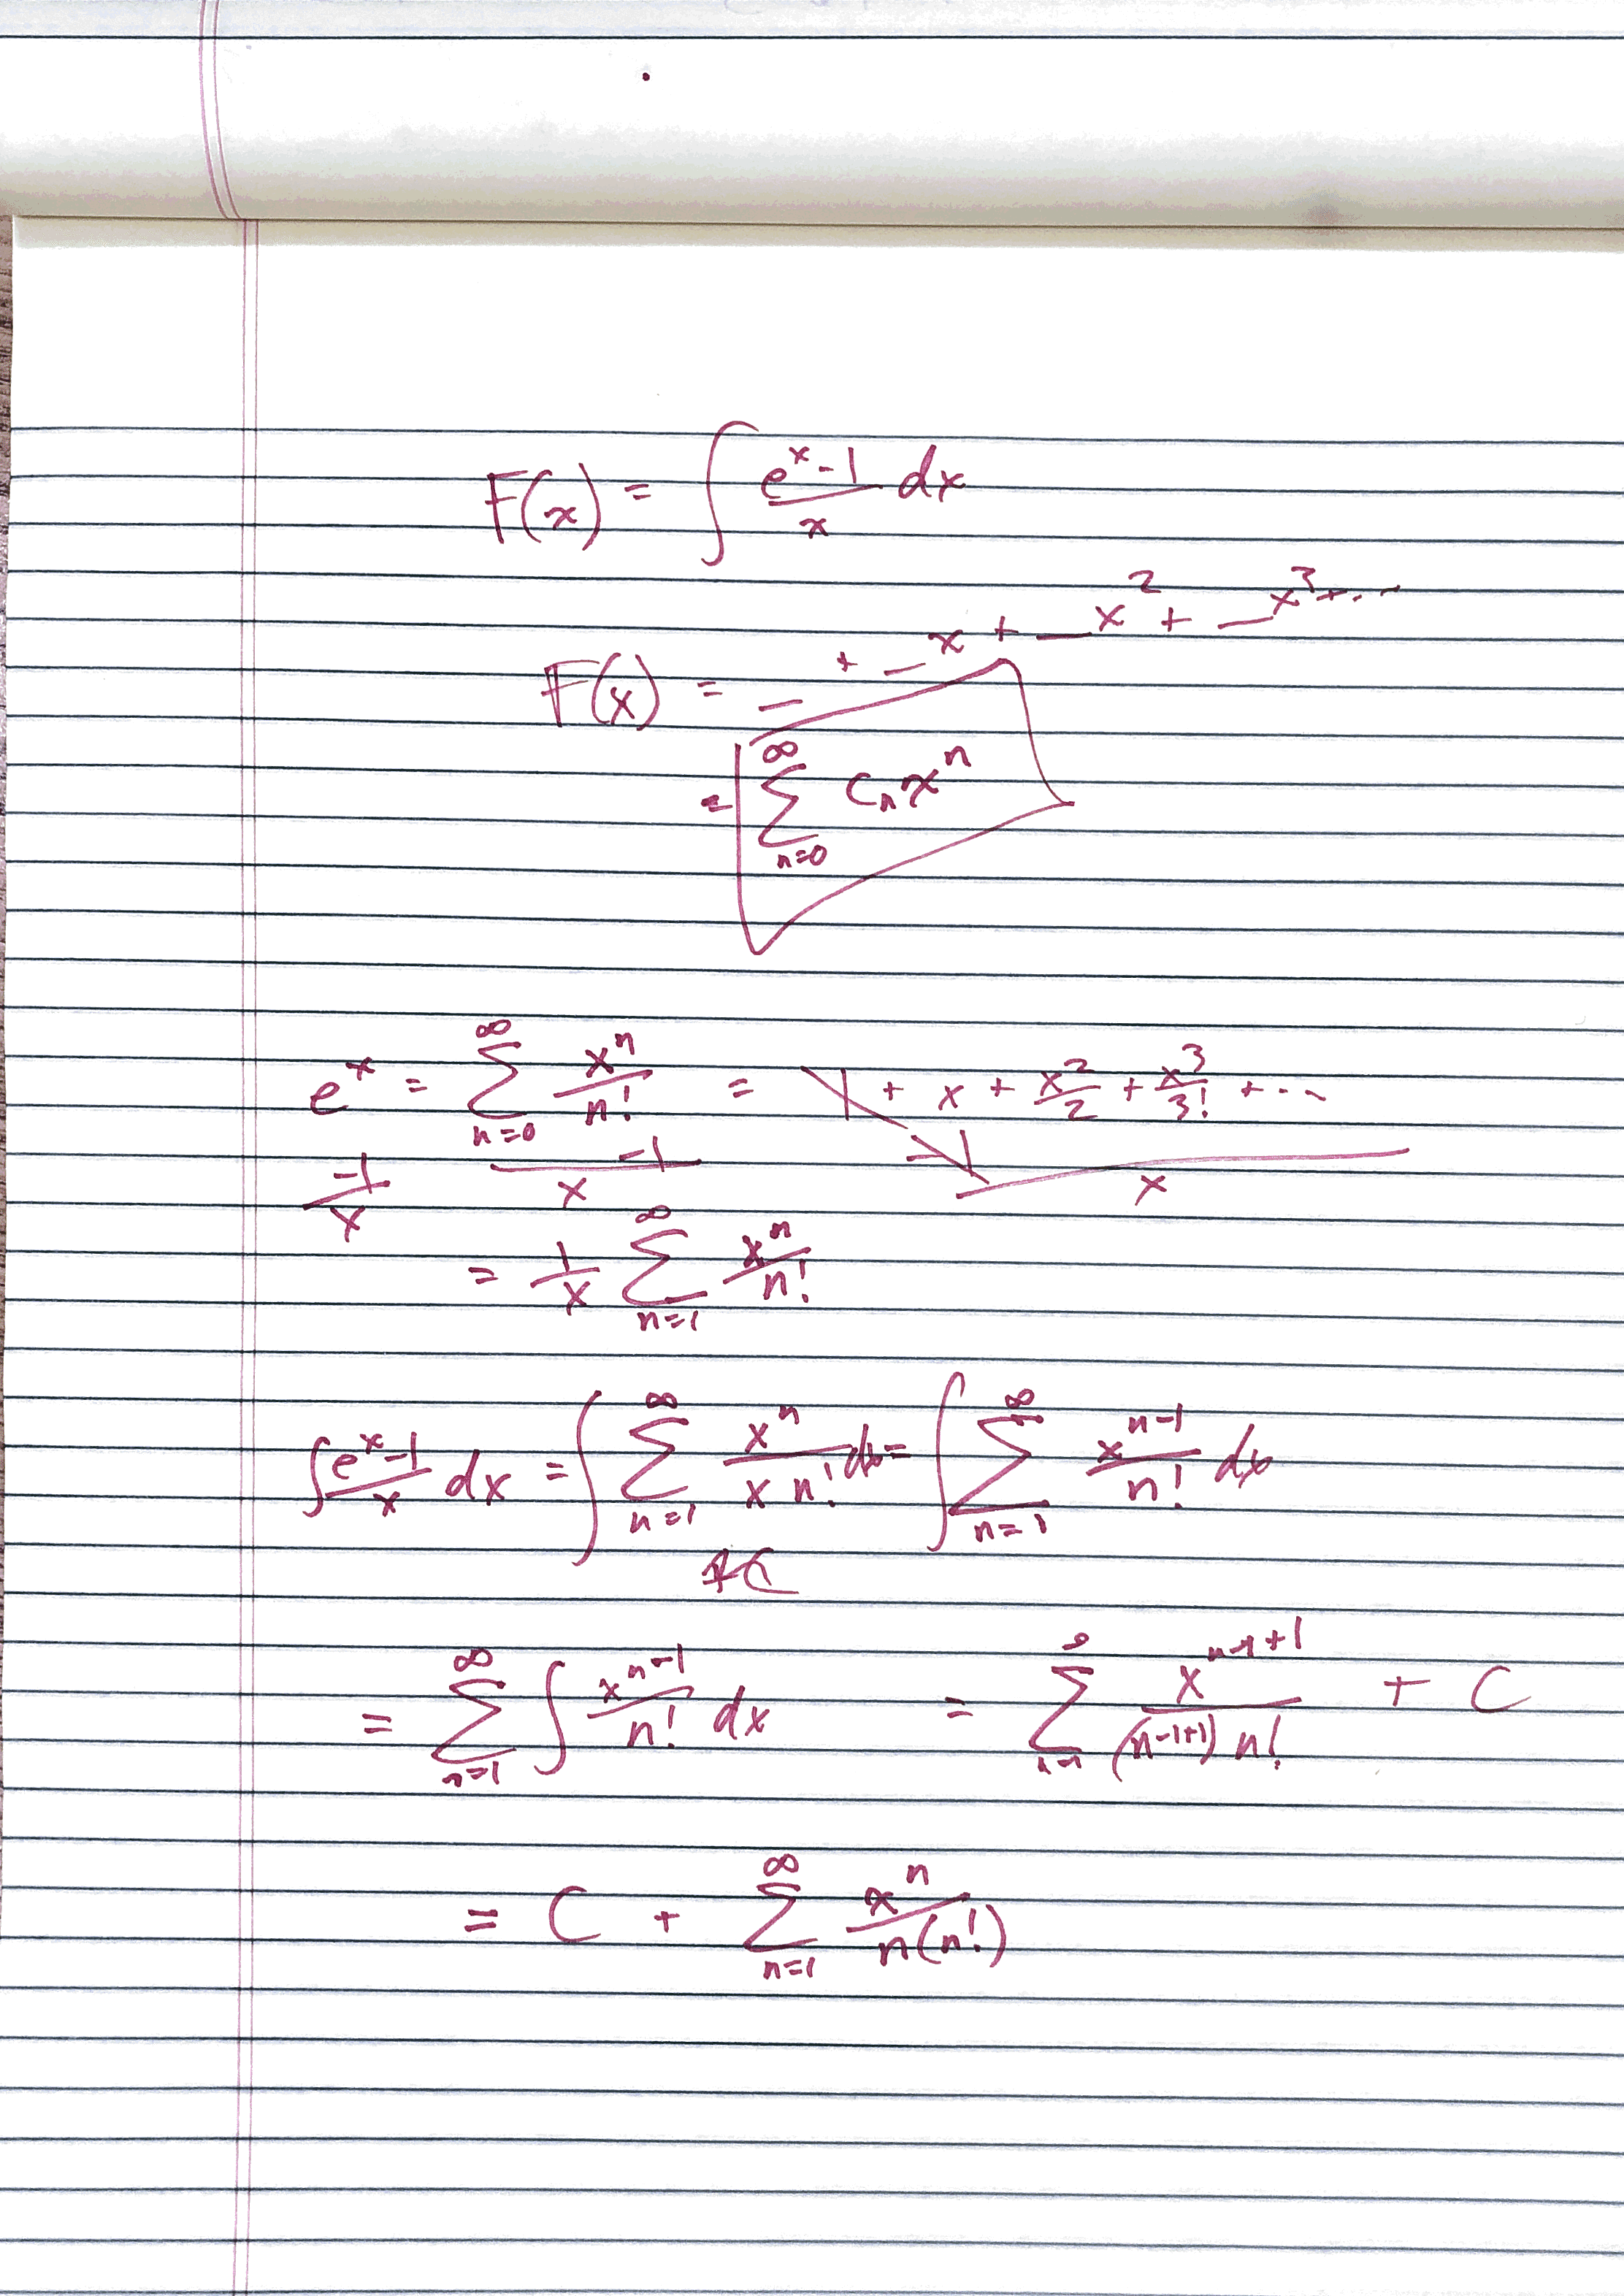 F(x) = ∫ (e^x - 1)/x dx
F(x) = _ + _ x + _ x^2 + _ x^3 + ...
= ∑_{n=0}^{∞} C_n x^n
e^x = ∑_{n=0}^{∞} x^n/n! = 1 + x + x^2/2 + x^3/3! + ...
-1/x -1/x -1/x
= 1/x ∑_{n=1}^{∞} x^n/n!
∫ (e^x - 1)/x dx = ∫ ∑_{n=1}^{∞} x^n/(x n!) dx = ∫ ∑_{n=1}^{∞} x^{n-1}/n! dx
= ∑_{n=1}^{∞} ∫ x^{n-1}/n! dx = ∑_{n=1}^{∞} x^{n-1+1}/((n-1+1) n!) + C
= C + ∑_{n=1}^{∞} x^n/(n(n!))